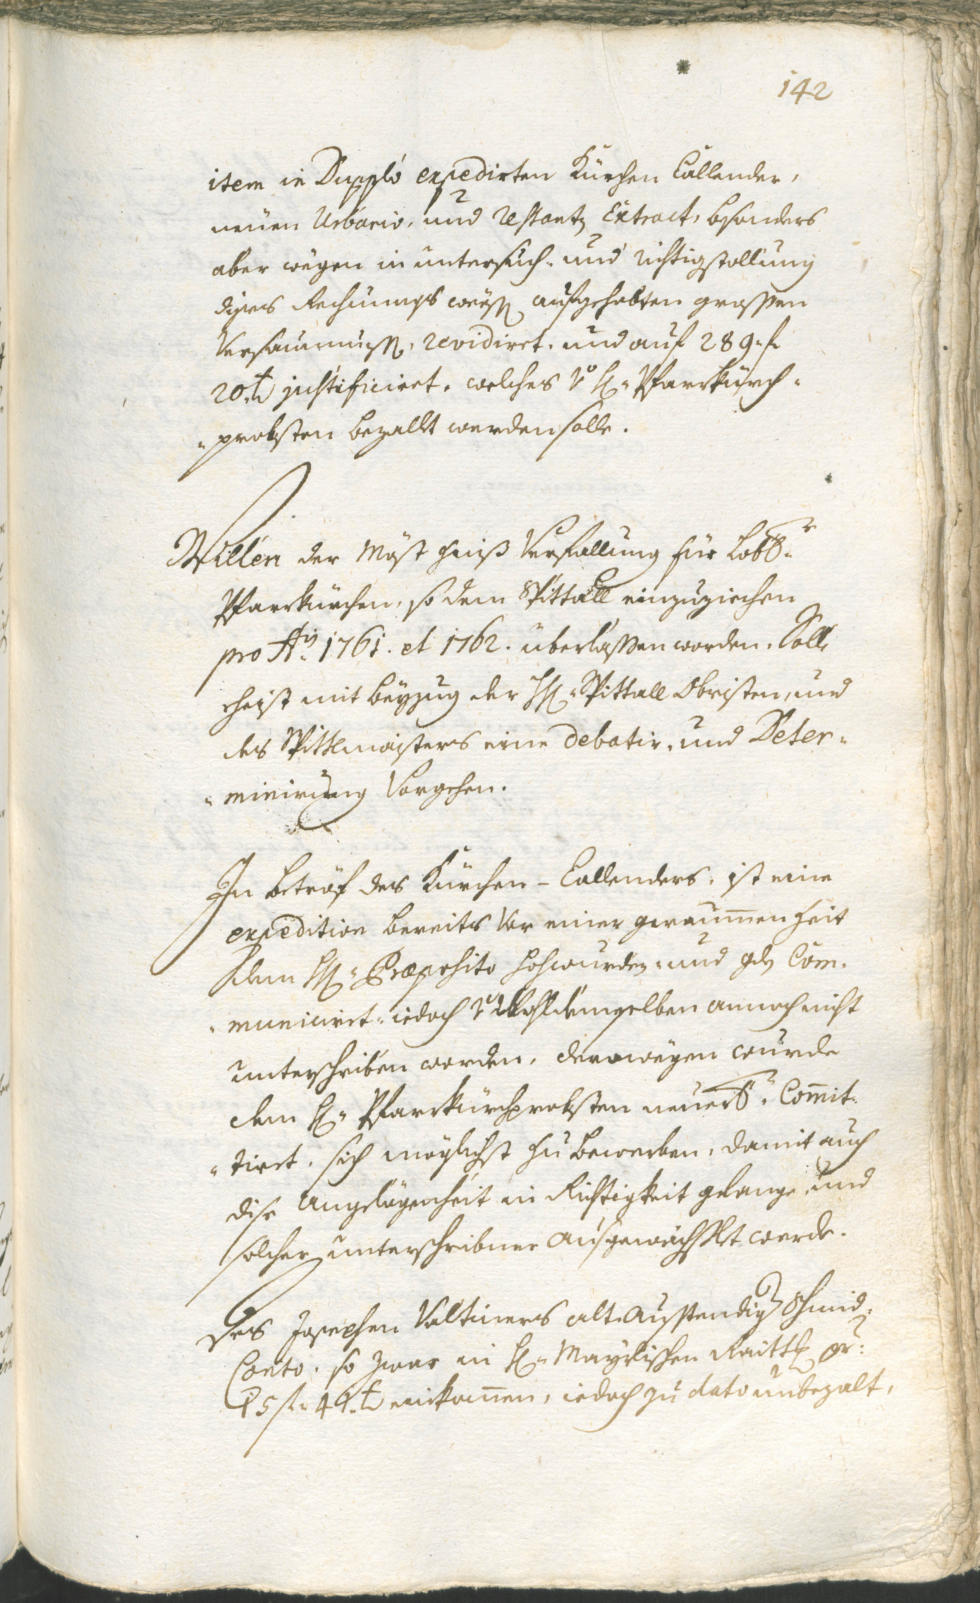 142
item in Dupplo expedirten Kürchen Callender,
neuen Urbario, und Restantz Extract, bsonders
aber wegen in untersuch- und richtigstellung
dises Rechnungs weesß aufgehebten grossen
Versaumnuss, revidirt, und auf 289. f
20. kr justificiert, welches H: Pfarrkürch-
-probsten bezallt werden solle.
Willen der Mösst Verfallung für Lobl:
Pfarrkürchen, so dem Spittall einzuziechen
pro A: 1761. et 1762. überlassen worden. Solle
heist mit beyzug der HH: Spittall Obristen, und
des Spittlmaisters eine Debatir- und Deter-
-minirung Vorgehen.
In betröf des Kürchen-Callenders, ist eine
expedition bereits vor einer geraumen Zeit
dem HH: Præposito Hochwürden und gdn Com-
-municirt, iedoch Wohldemselben annoch nicht
unterschriben worden, derowegen wurde
dem H: Pfarrkürchprobsten neuer Committ-
-tirt, sich möglichst zu bewerben, damit auch
dise Angelägenheit in Richtigkeit gelange und
solcher unterschribner ausgewächslet werde.
Des Josephen Veltiners alt Ausstendig Schmid-
Conto, so zwar in H: Mayrlischen Raittg pr:
15 f. 44. kr einkomen, iedoch zu dato unbezalt,